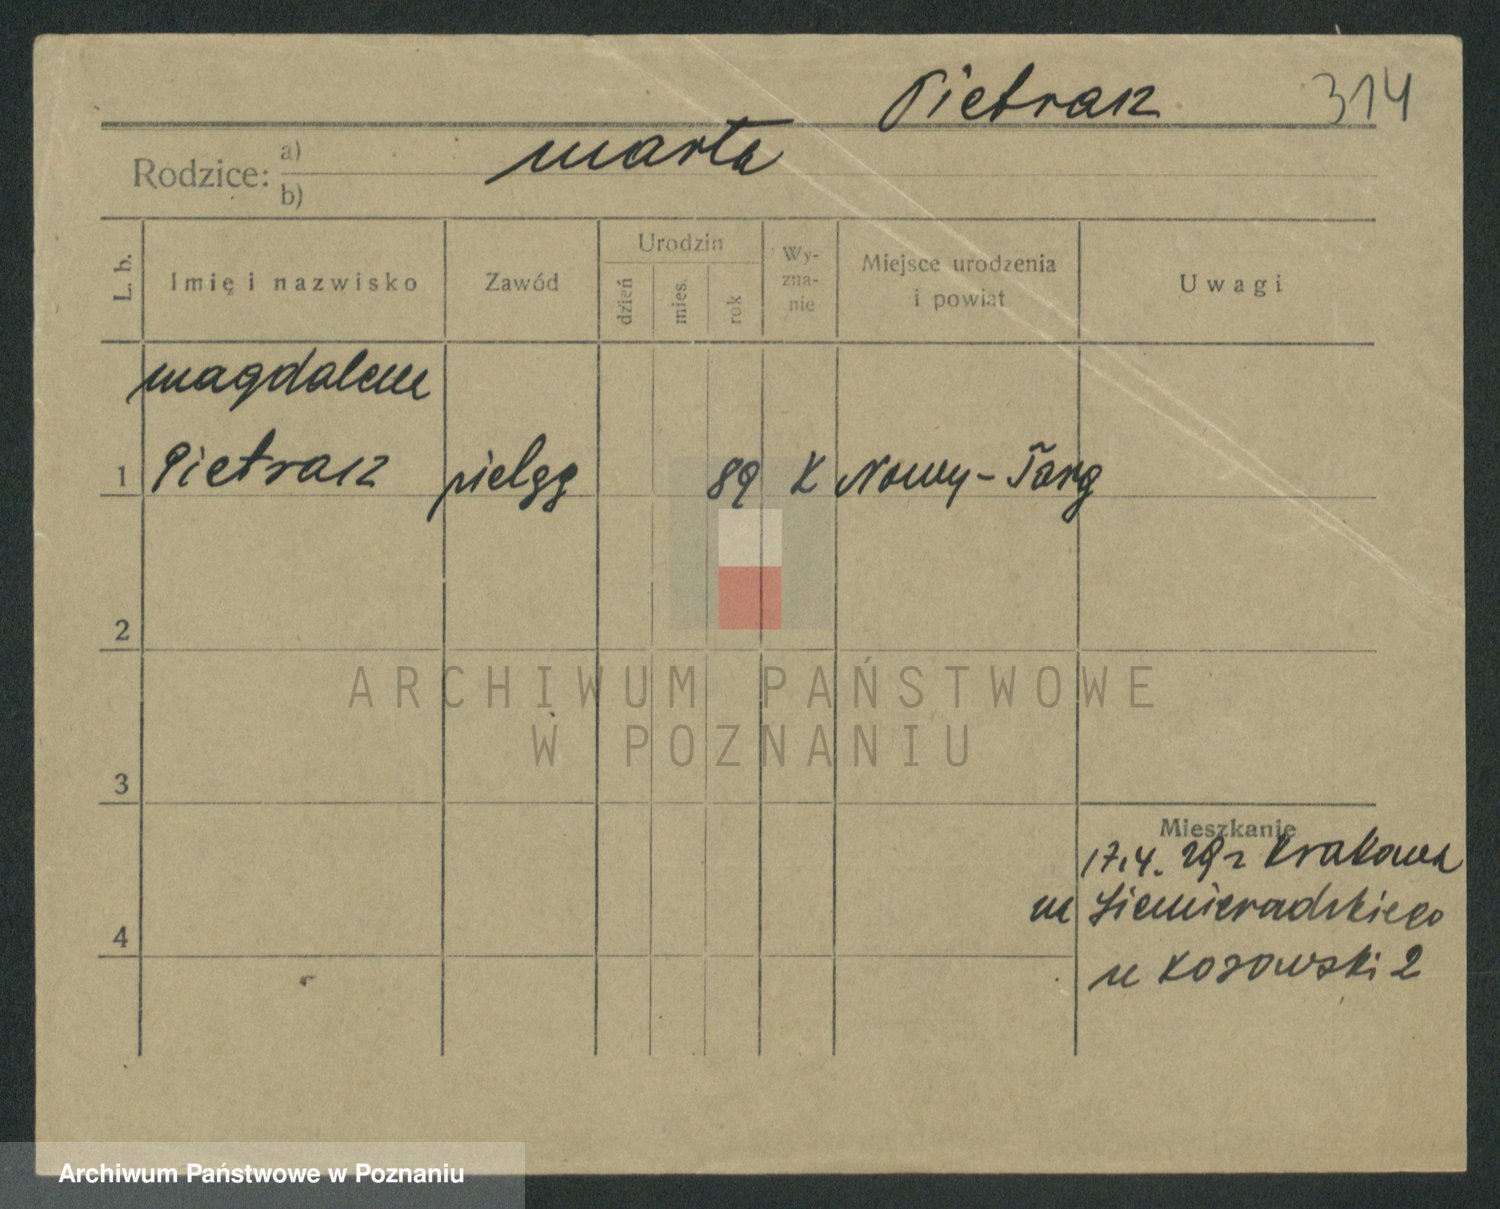 Pietrasz 314
Rodzice: a)
marta
b)
L. b.
Imię i nazwisko
Zawód
Urodzin
dzień
mies.
rok
Wy-
zna-
nie
Miejsce urodzenia
i powiat
Uwagi
magdalena
1 Pietrasz pielęg 89 K Nowy-Targ
2
3
4
Mieszkanie
17.4. 29 z Krakowa
m Siemieradzkiego
u Kosowski 2
ARCHIWUM PAŃSTWOWE
W POZNANIU
Archiwum Państwowe w Poznaniu